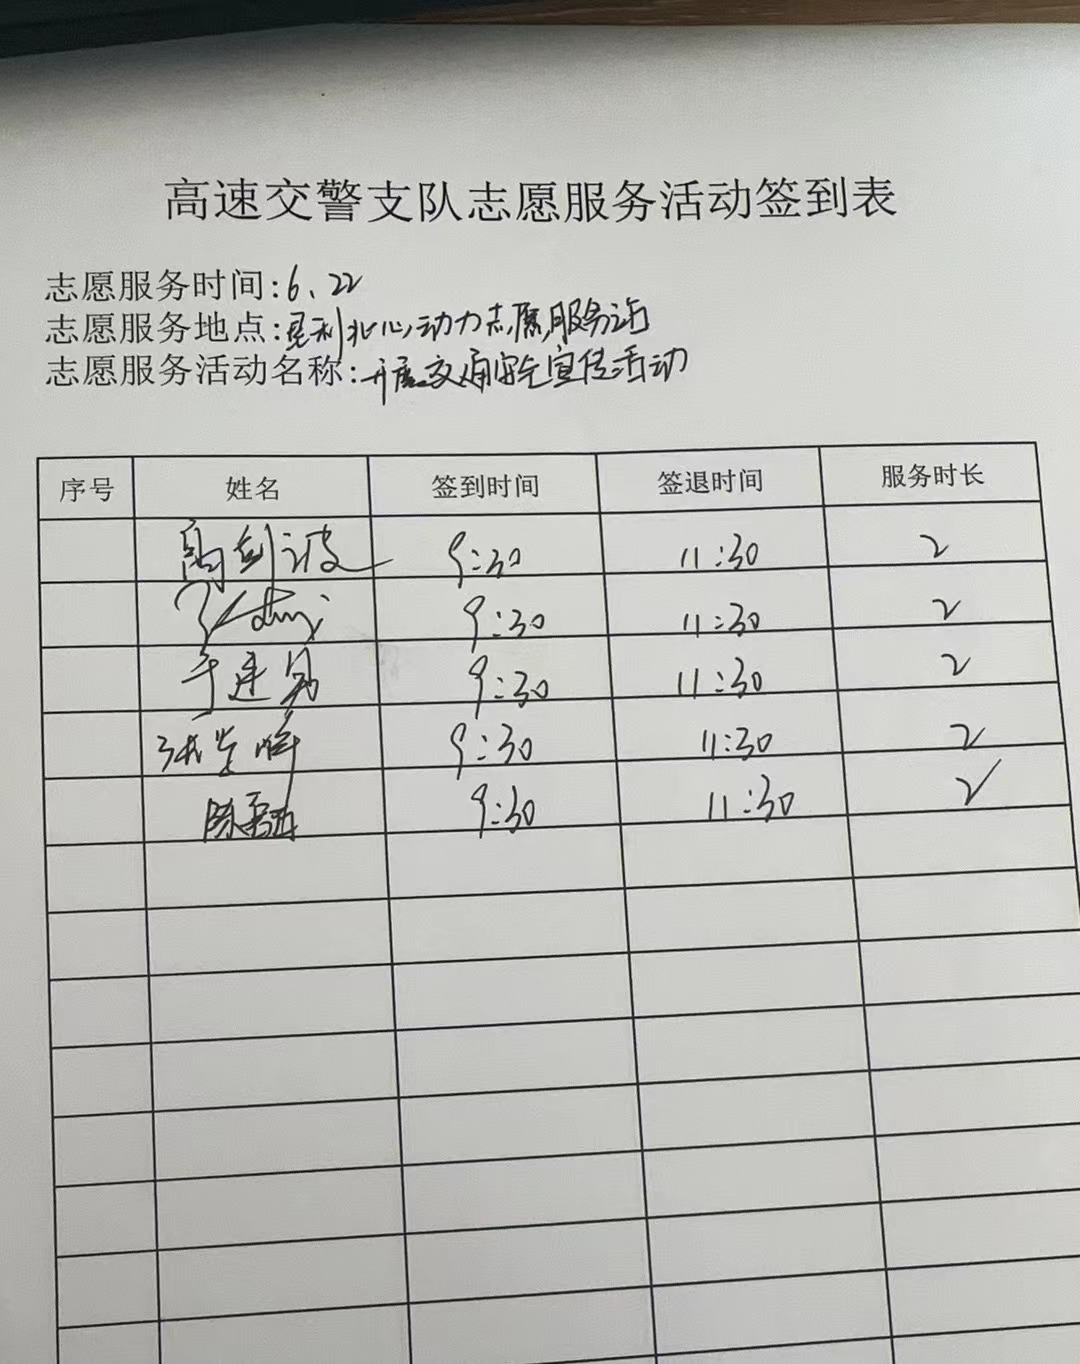 高速交警支队志愿服务活动签到表
志愿服务时间:6、22
志愿服务地点:垦利北心动力志愿服务站
志愿服务活动名称:开展交通安全宣传活动
序号 姓名 签到时间 签退时间 服务时长
高剑波 9:30 11:30 2
9:30 11:30 2
于连 9:30 11:30 2
张 9:30 11:30 2
陈 9:30 11:30 2